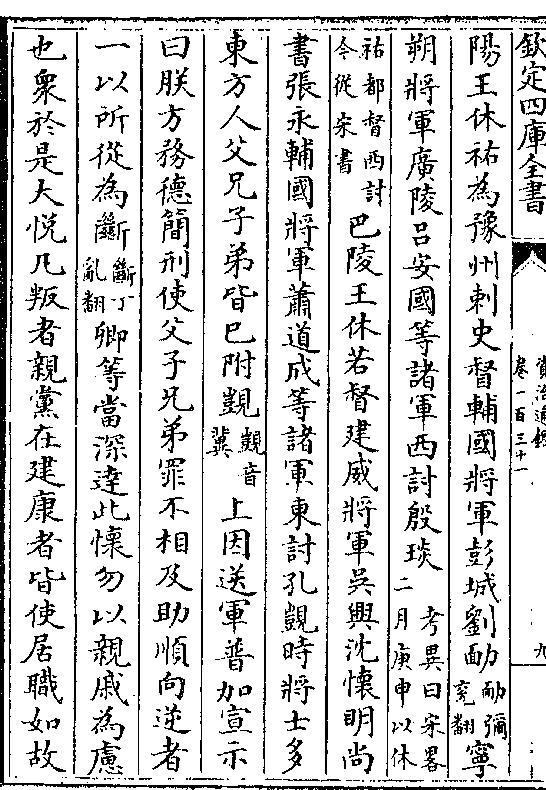 欽定四庫全書
資治通鑑
卷一百三十一
九
陽王休祐為豫州刺史督輔國將軍彭城劉勔勔彌兖翻寧
朔將軍廣陵吕安國等諸軍西討殷琰考異曰宋畧二月庚申以休
祐都督西討今從宋書巴陵王休若督建威將軍吳興沈懷明尚
書張永輔國將軍蕭道成等諸軍東討孔覬時將士多
東方人父兄子弟皆已附覬覬音冀上因送軍普加宣示
曰朕方務德簡刑使父子兄弟罪不相及助順向逆者
一以所從為斷斷丁亂翻卿等當深達此懷勿以親戚為慮
也衆於是大悅凡叛者親黨在建康者皆使居職如故